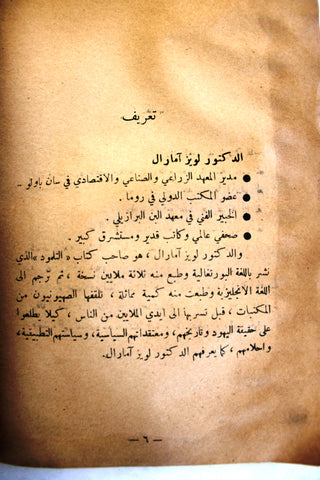 تعريف
الدكتور لويز آمارال
● مدير المعهد الزراعي والصناعي والاقتصادي في سان باولو ..
● عضو المكتب الدولي في روما .
● الخبير الفني في معهد البن البرازيلي .
● صحفي عالمي وكاتب قدير ومستشرق كبير .
والدكتور لويز آمارال ، هو صاحب كتاب «التلمود» الذي
نشر باللغة البورتغالية وطبع منه ثلاثة ملايين نسخة ، ثم ترجم الى
اللغة الانجليزية وطبعت منه كمية مماثلة ، تلقفها الصهيونيون من
المكتبات ، قبل تسربها الى ايدي الملايين من الناس ، كيلا يطلعوا
على حقيقة اليهود وتاريخهم ، ومعتقداتهم السياسية ، وسياستهم التطبيقية ،
واحلامهم ، كما يعرفهم الدكتور لويز آمارال .
— ٦ —